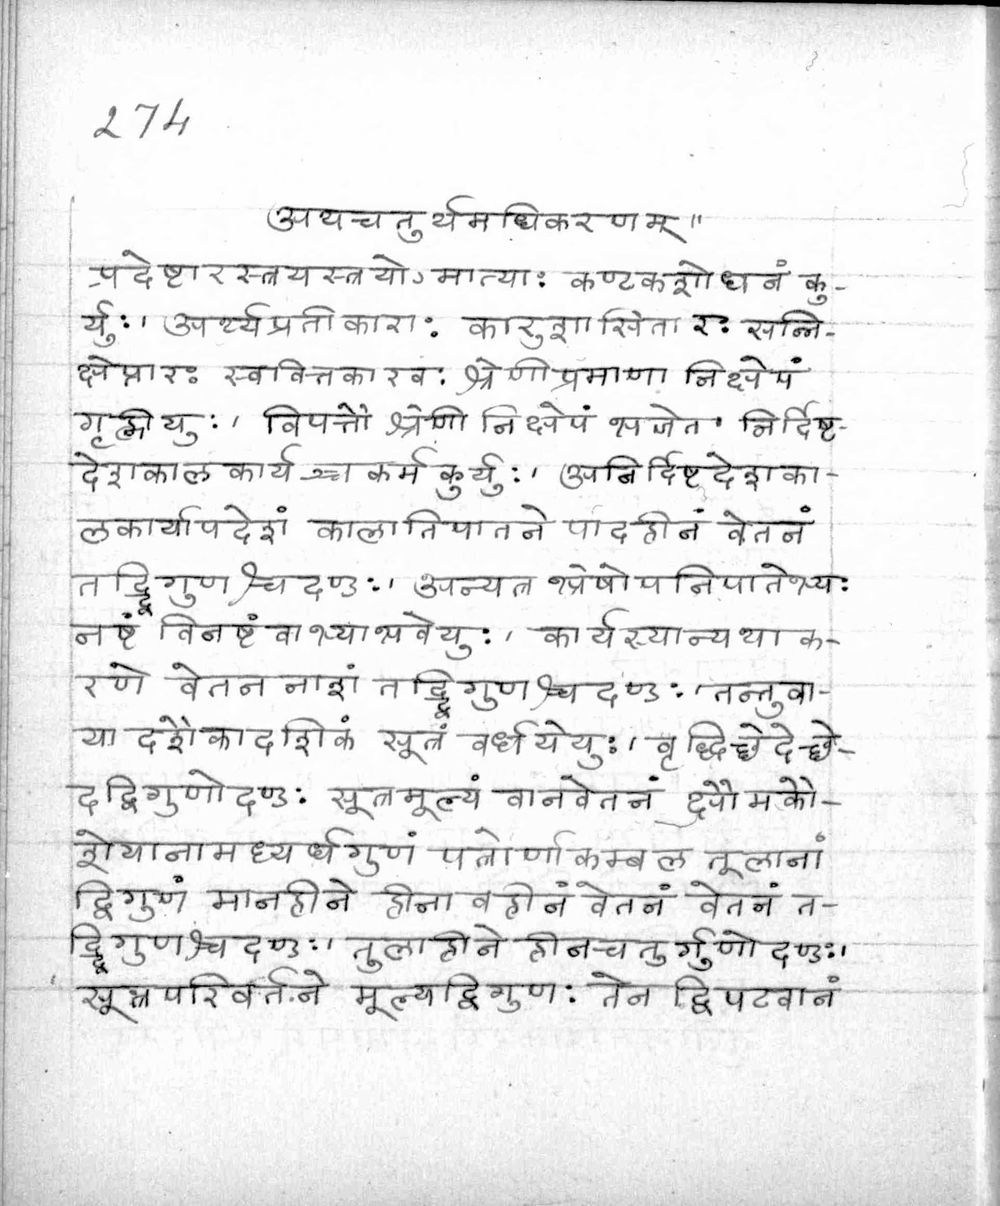 274
अथचतुर्थमधिकरणम्॥
प्रदेष्टारस्त्रयस्त्रयोऽमात्याः कण्टकशोधनं कु-
र्युः। अर्थ्यप्रतीकाराः कारुशासितारः सन्नि-
क्षेप्तारः स्ववित्तकारवः श्रेणीप्रमाणा निक्षेपं
गृह्णीयुः। विपत्तौ श्रेणी निक्षेपं भजेत। निर्दिष्ट-
देशकालकार्यञ्च कर्म कुर्युः। अनिर्दिष्टदेशका-
लकार्यापदेशं कालातिपातने पादहीनं वेतनं
तद्द्विगुणश्च दण्डः। अन्यत्र भ्रेषोपनिपातेभ्यः
नष्टं विनष्टं वाभ्याभवेयुः। कार्यस्यान्यथा क-
रणे वेतननाशं तद्द्विगुणश्च दण्डः। तन्तुवा-
या दशैकादशिकं सूत्रं वर्धयेयुः। वृद्धिच्छेदे छे-
दद्विगुणो दण्डः सूत्रमूल्यं वानवेतनं क्षौमकौ-
शेयानामध्यर्धगुणं पत्त्रोर्णाकम्बल तूलानां
द्विगुणं मानहीने हीनावहीनं वेतनं वेतनं त-
द्द्विगुणश्च दण्डः। तुलाहीने हीनचतुर्गुणो दण्डः।
सूत्रपरिवर्तने मूल्यद्विगुणः तेन द्विपटवानं